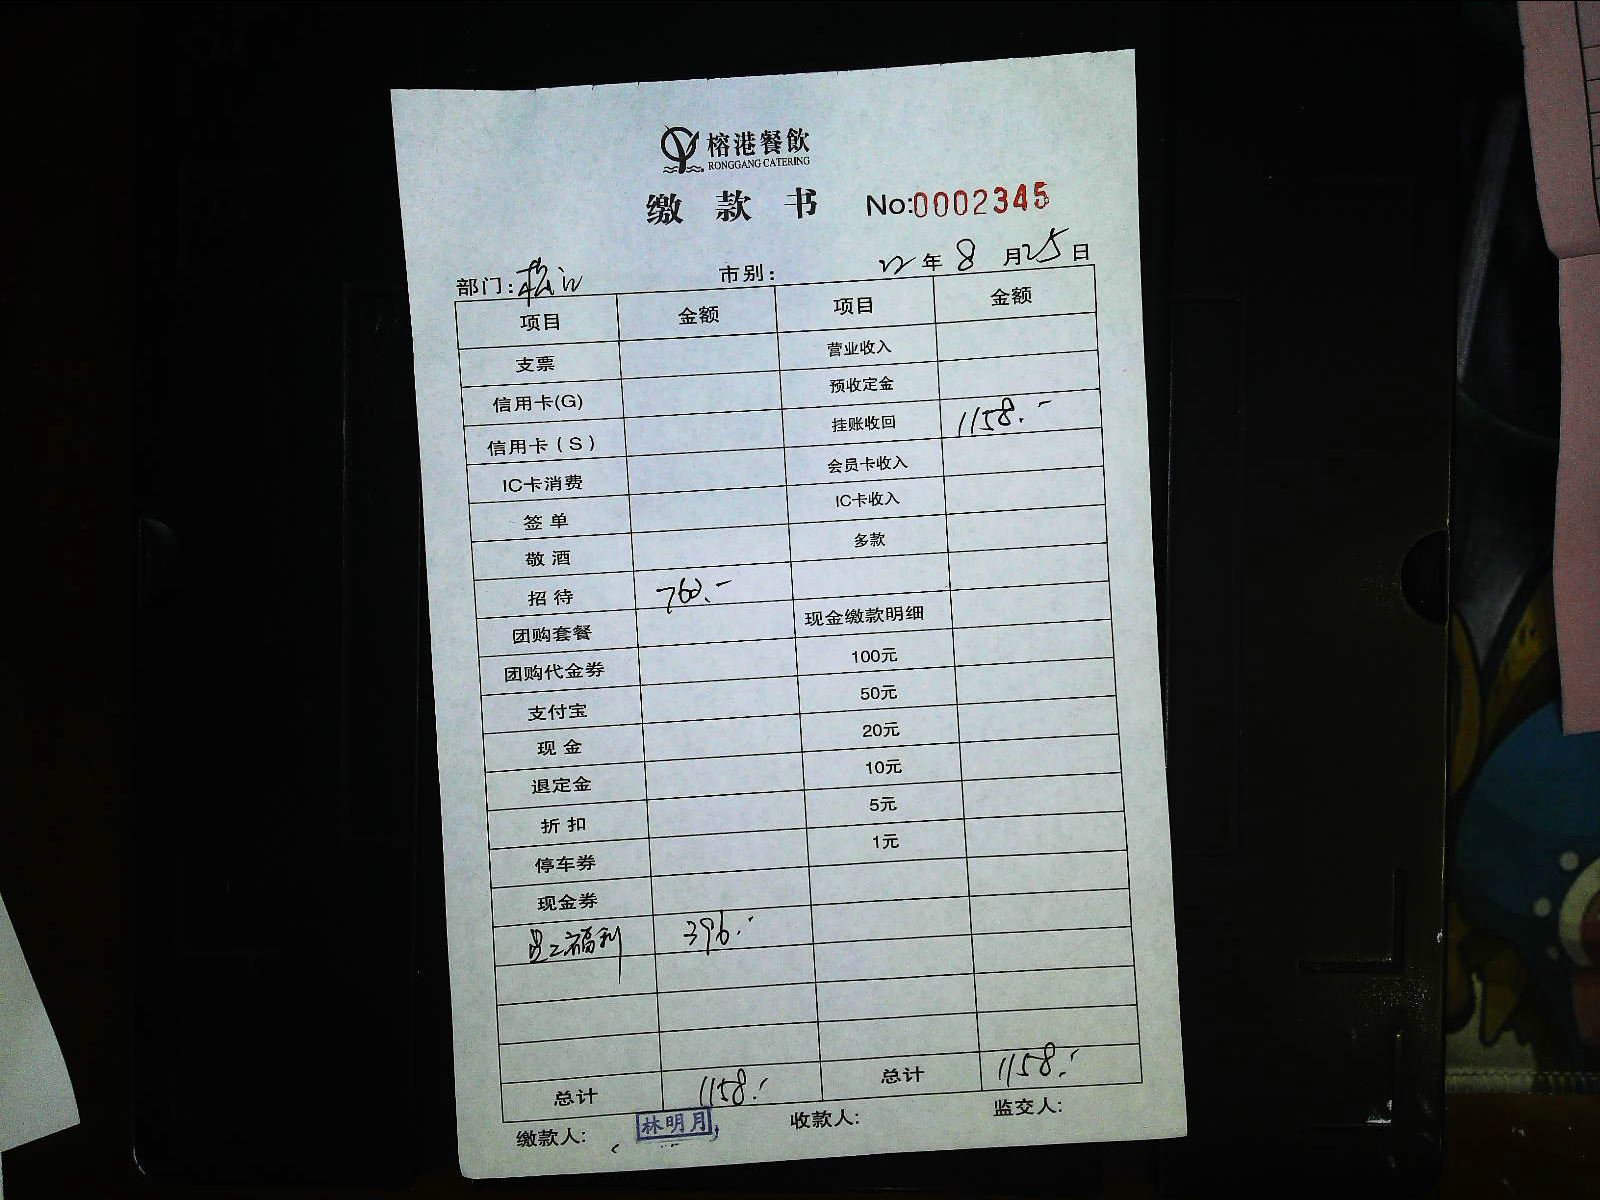 榕港餐飲
RONGGANG CATERING
缴 款 书 No:0002345
部门:松江 市别: 22年8月25日
项目 金额 项目 金额
支票 营业收入
信用卡(G) 预收定金
信用卡(S) 挂账收回 1158.-
IC卡消费 会员卡收入
签单 IC卡收入
敬酒 多款
招待 762.-
团购套餐 现金缴款明细
团购代金券 100元
支付宝 50元
现金 20元
退定金 10元
折扣 5元
停车券 1元
现金券
员工福利 396.-
总计 1158.- 总计 1158.-
缴款人: 林明月 收款人: 监交人: